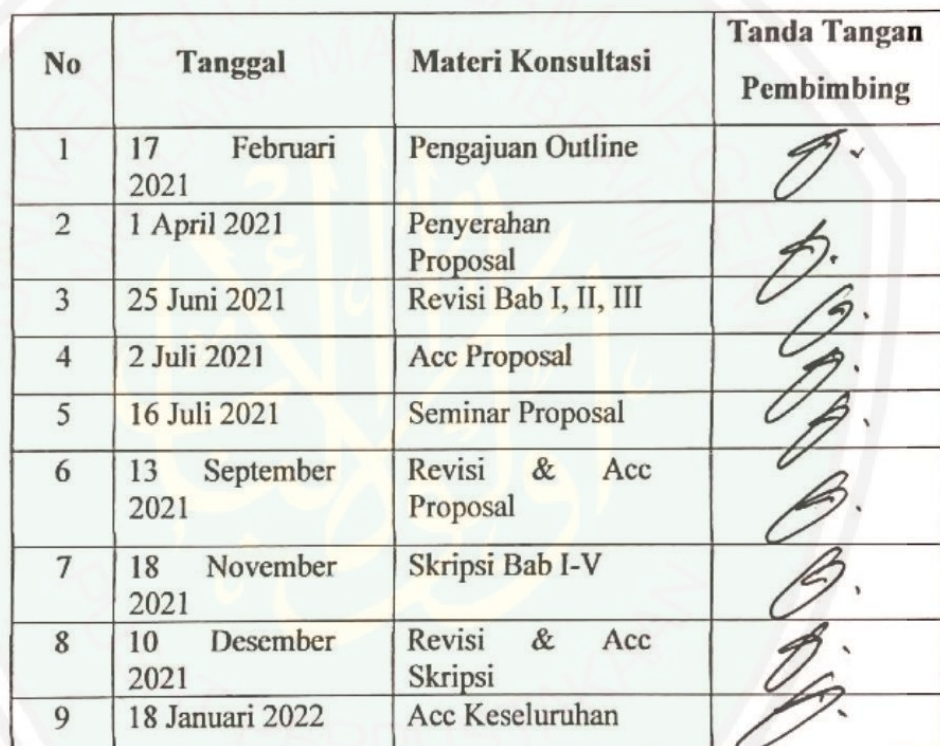 No Tanggal Materi Konsultasi Tanda Tangan
Pembimbing
1 17 Februari Pengajuan Outline
2021
2 1 April 2021 Penyerahan
Proposal
3 25 Juni 2021 Revisi Bab I, II, III
4 2 Juli 2021 Acc Proposal
5 16 Juli 2021 Seminar Proposal
6 13 September Revisi & Acc
2021 Proposal
7 18 November Skripsi Bab I-V
2021
8 10 Desember Revisi & Acc
2021 Skripsi
9 18 Januari 2022 Acc Keseluruhan